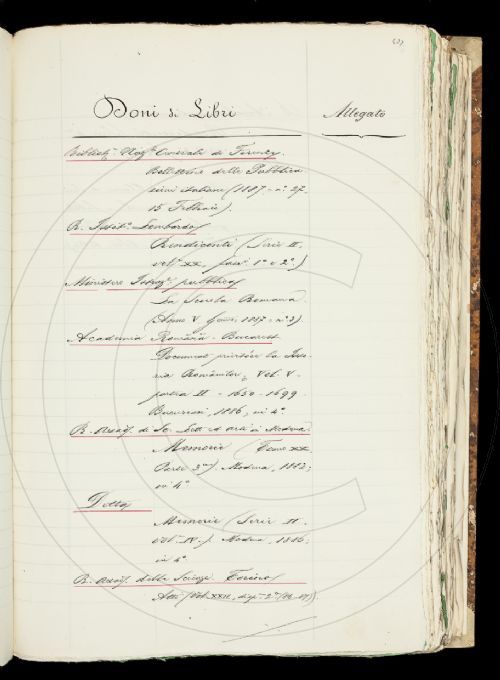 Doni di Libri
Allegato
Bibliot.ª Naz.le Centrale di Firenze
Bollettino delle Pubblica
zioni italiane (1887 - n.º 27
15 Febbraio).
R. Istit.º Lombardo
Rendiconti (Serie II.
vol. XX, fasc. 1º e 2º)
Ministero Istruz.e pubblica
La Scuola Romana
(Anno V. Genn. 1887 - n.º 3)
Academia Romănă - Bucarest
Documente privitóre la Isto-
ria Românilor, Vol. V.
partea II - 1650 - 1699
Bucuresci, 1886, in 4º
R. Accad. di Sc. Lett. ed Arti in Modena
Memorie (Tomo XX.
Parte 3ª) Modena, 1882;
in 4º
Detta
Memorie (Serie II.
vol. IV.) Modena, 1886;
in 4º
R. Accad. delle Scienze. Torino
Atti (Vol. XXII, disp. 2ª (86-87))